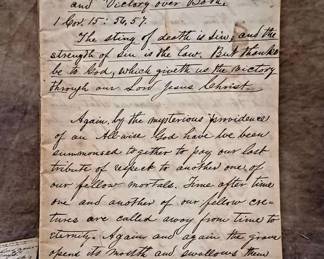 and Victory over Both.
1 Cor. 15: 56,57.
The sting of death is sin; and the
strength of sin is the law. But thanks
be to God, which giveth us the victory
through our Lord Jesus Christ.
Again, by the mysterious providence
of an Allwise God have we been
summoned together to pay our last
tribute of respect to another one, of
our fellow mortals. Time after time
one and another of our fellow crea-
tures are called away from time to
eternity. Again and again the grave
opens its mouth and swallows them